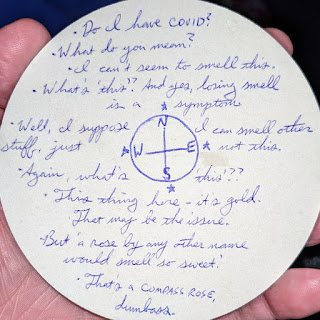 · Do I have COVID?
· What do you mean?
· I can't seem to smell this.
· What's 'this'? And yes, losing smell
is a symptom
· Well, I suppose I can smell other
stuff, just not this.
N
W E
S
· Again, what's 'this'??
· This thing here - it's gold.
That may be the issue.
· But 'a rose by any other name
would smell so sweet.'
· That's a COMPASS ROSE,
dumbass.